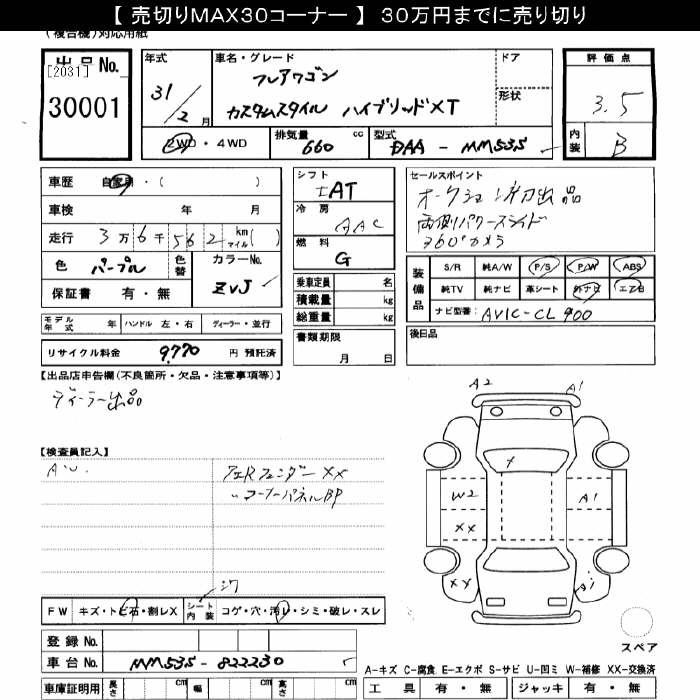 【 売切りMAX30コーナー 】 30万円までに売り切り
(複合機)対応用紙
出品 No.
[2031]
30001
年式
31/2 月
車名・グレード
フレアワゴン
カスタムスタイル ハイブリッドXT
ドア
形状
評価点
3.5
内装
B
2WD・4WD
排気量 cc
660
型式
DAA - MM53S
車歴 自家用・( )
車検 年 月
走行 3万6千562 km マイル( )
色 パープル
色替
カラーNo.
ZVJ
保証書 有・無
シフト
AT
冷房
AAC
燃料
G
乗車定員 名
積載量 kg
総重量 kg
セールスポイント
オークション初出品
両側パワースライド
360°カメラ
装備品
S/R 純A/W P/S P/W ABS
純TV 純ナビ 革シート 外ナビ エアB
ナビ型番: AVIC-CL900
モデル年式 年 ハンドル 左・右 ディーラー・並行
リサイクル料金 9,770 円 預託済
書類期限
月 日
後日品
【出品店申告欄(不良箇所・欠品・注意事項等)】
ディーラー出品
【検査員記入】
AW.
左Rフェンダー XX
〃コーナーパネルBP
A2
A1
W2
A1
XX
XX
シワ
FW キズ・トビ石・割レX シート内装 コゲ・穴・汚レ・シミ・破レ・スレ
スペア
登録 No.
車台 No. MM53S - 822230
A-キズ C-腐食 E-エクボ S-サビ U-凹ミ W-補修 XX-交換済
車庫証明用 長さ cm 幅 cm 高さ cm
工具 有・無 ジャッキ 有・無